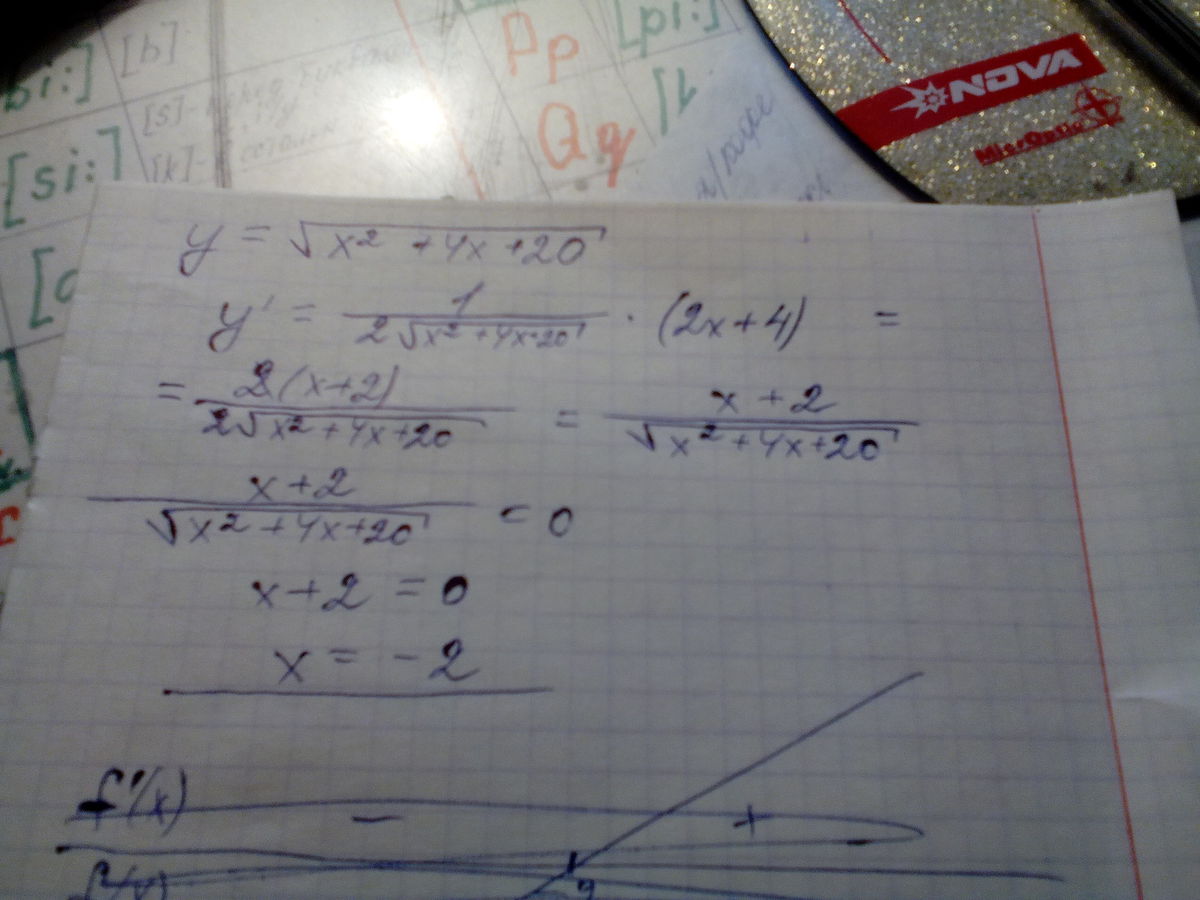 [b]
[s]
[si:]
[k]
Pp
[pi:]
Qq
NOVA
MicrOptic
y = √(x² + 4x + 20)
y' = 1/(2√(x² + 4x + 20)) · (2x + 4) =
= 2(x + 2)/(2√(x² + 4x + 20)) = (x + 2)/√(x² + 4x + 20)
(x + 2)/√(x² + 4x + 20) = 0
x + 2 = 0
x = -2
f'(x) − +